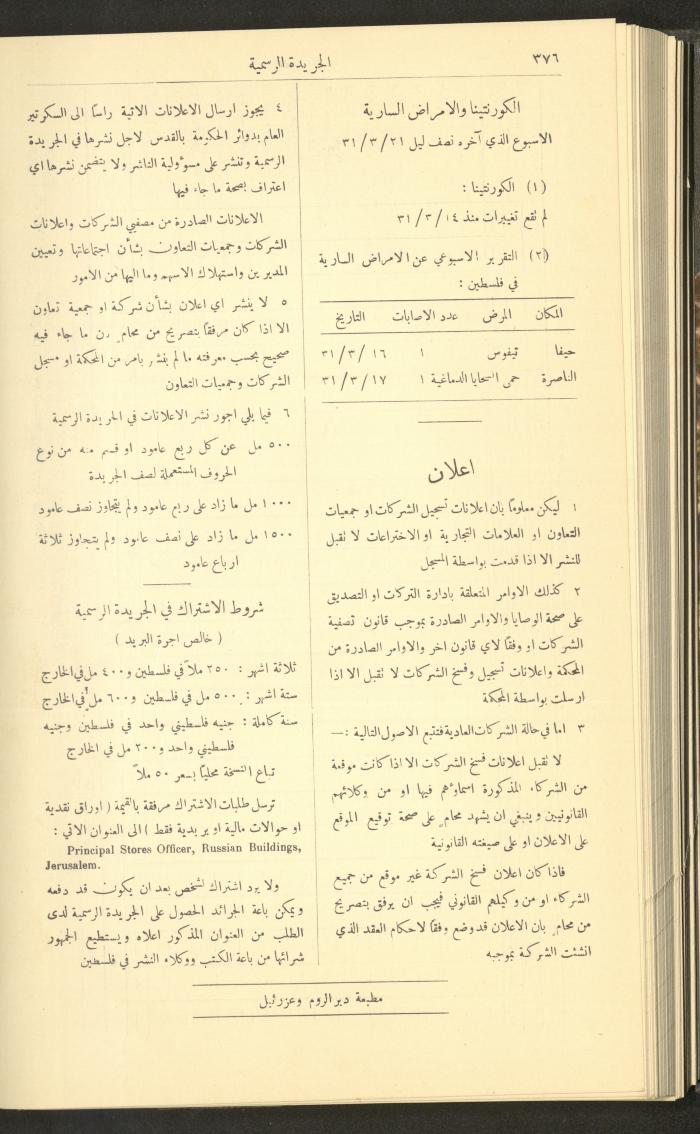 ٣٧٦
الجريدة الرسمية
الكورنتينا والامراض السارية
الاسبوع الذي آخره نصف ليل ٢١/٣/٣١
(١) الكورنتينا :
لم تقع تغييرات منذ ١٤/٣/٣١
(٢) التقرير الاسبوعي عن الامراض السارية
في فلسطين :
المكان المرض عدد الاصابات التاريخ
حيفا تيفوس ١ ١٦/٣/٣١
الناصرة حمى السحايا الدماغية ١ ١٧/٣/٣١
اعلان
١ ليكن معلومًا بان اعلانات تسجيل الشركات او جمعيات
التعاون او العلامات التجارية او الاختراعات لا تقبل
للنشر الا اذا قدمت بواسطة المسجل
٢ كذلك الاوامر المتعلقة بادارة التركات او التصديق
على صحة الوصايا والاوامر الصادرة بموجب قانون تصفية
الشركات او وفقًا لاي قانون اخر والاوامر الصادرة من
المحكمة واعلانات تسجيل وفسخ الشركات لا تقبل الا اذا
ارسلت بواسطة المحكمة
٣ اما في حالة الشركات العادية فتتبع الاصول التالية :—
لا تقبل اعلانات فسخ الشركات الا اذا كانت موقعة
من الشركاء المذكورة اسماؤهم فيها او من وكلائهم
القانونيين وينبغي ان يشهد محامٍ على صحة توقيع الموقع
على الاعلان او على صيغته القانونية
فاذا كان اعلان فسخ الشركة غير موقع من جميع
الشركاء او من وكيلهم القانوني فيجب ان يرفق بتصريح
من محامٍ بان الاعلان قد وضع وفقًا لاحكام العقد الذي
انشئت الشركة بموجبه
٤ يجوز ارسال الاعلانات الاتية راسًا الى السكرتير
العام بدوائر الحكومة بالقدس لاجل نشرها في الجريدة
الرسمية وتنشر على مسؤولية الناشر ولا يتضمن نشرها اي
اعتراف بصحة ما جاء فيها
الاعلانات الصادرة من مصفيي الشركات واعلانات
الشركات وجمعيات التعاون بشأن اجتماعاتها وتعيين
المديرين واستهلاك الاسهم وما اليها من الامور
٥ لا ينشر اي اعلان بشأن شركة او جمعية تعاون
الا اذا كان مرفقًا بتصريح من محامٍ بان ما جاء فيه
صحيح بحسب معرفته ما لم ينشر بامر من المحكمة او مسجل
الشركات وجمعيات التعاون
٦ فيما يلي اجور نشر الاعلانات في الجريدة الرسمية
٥٠٠ مل عن كل ربع عامود او قسم منه من نوع
الحروف المستعملة لصف الجريدة
١٠٠٠ مل ما زاد على ربع عامود ولم يتجاوز نصف عامود
١٥٠٠ مل ما زاد على نصف عامود ولم يتجاوز ثلاثة
ارباع عامود
شروط الاشتراك في الجريدة الرسمية
( خالص اجرة البريد )
ثلاثة اشهر : ٢٥٠ ملاً في فلسطين و٤٠٠ مل في الخارج
ستة اشهر : ٥٠٠ مل في فلسطين و٦٠٠ مل في الخارج
سنة كاملة : جنيه فلسطيني واحد في فلسطين وجنيه
فلسطيني واحد و٢٠٠ مل في الخارج
تباع النسخة محليًا بسعر ٥٠ ملاً
ترسل طلبات الاشتراك مرفقة بالقيمة ( اوراق نقدية
او حوالات مالية او بريدية فقط ) الى العنوان الاتي :
Principal Stores Officer, Russian Buildings,
Jerusalem.
ولا يرد اشتراك لشخص بعد ان يكون قد دفعه
ويمكن باعة الجرائد الحصول على الجريدة الرسمية لدى
الطلب من العنوان المذكور اعلاه ويستطيع الجمهور
شرائها من باعة الكتب ووكلاء النشر في فلسطين
مطبعة دير الروم وعزرئيل